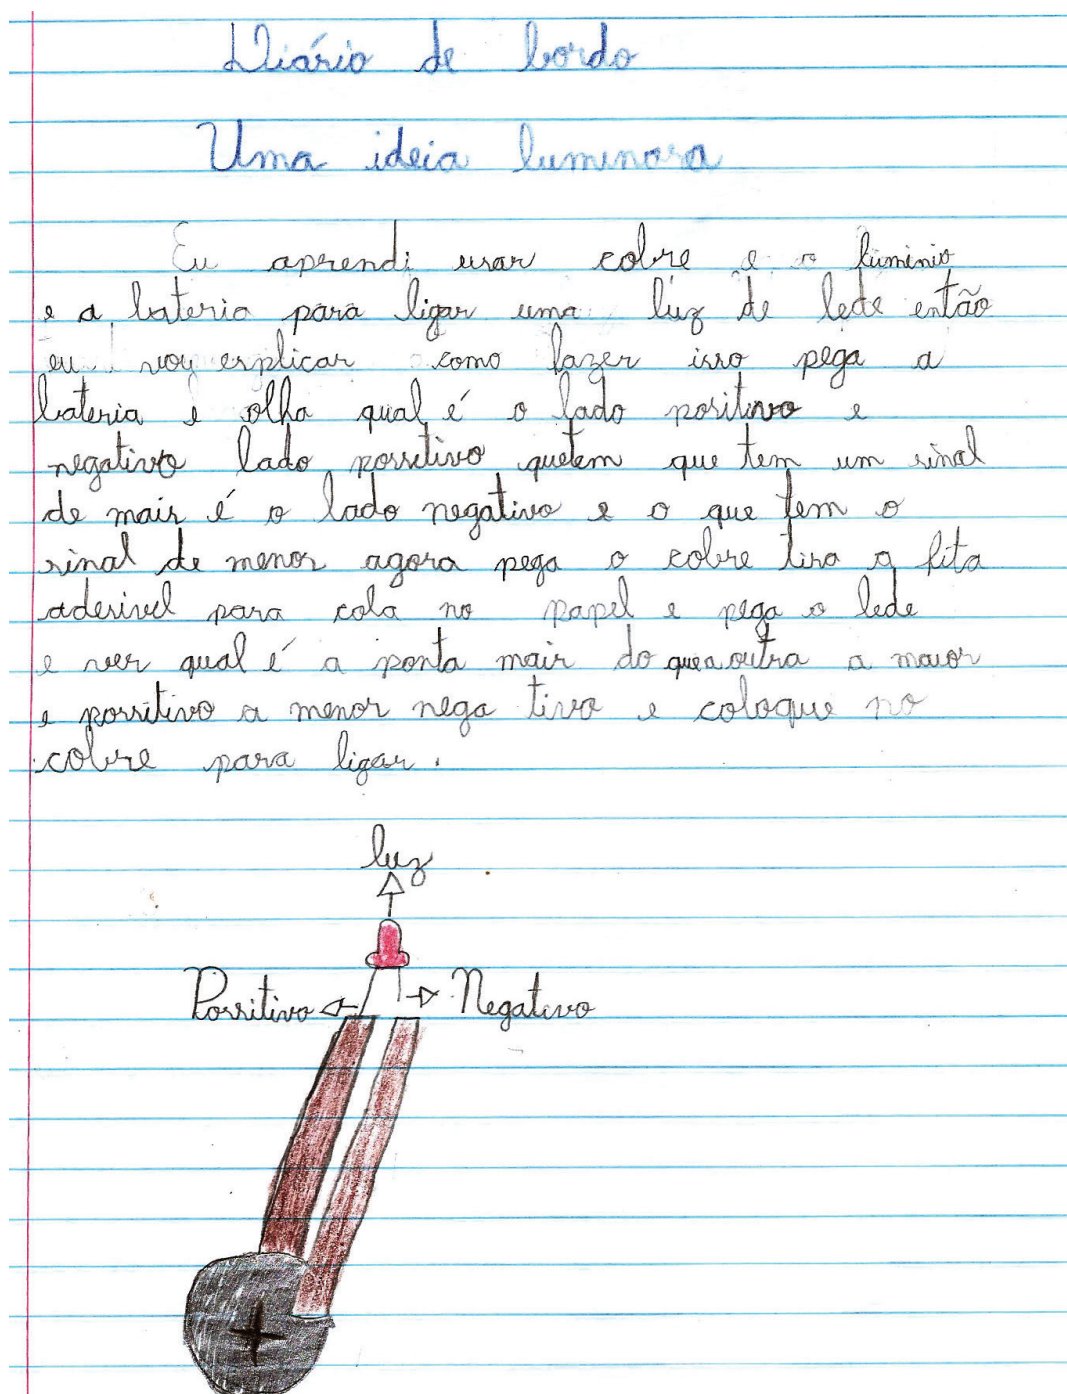 Diário de bordo
Uma ideia luminosa
Eu aprendi usar cobre e o lumínio
e a bateria para ligar uma luz de lede então
eu voy esplicar como fazer isso pega a
bateria e olha qual é o lado positivo e
negativo lado possitivo quetem que tem um sinal
de mais é o lado negativo e o que tem o
sinal de menor agora pega o cobre tira a fita
aderivel para cola no papel e pega o lede
e ver qual é a ponta mair do quea outra a maior
e possitivo a menor nega tivo e coloque no
cobre para ligar.
luz
Possitivo Negativo
+